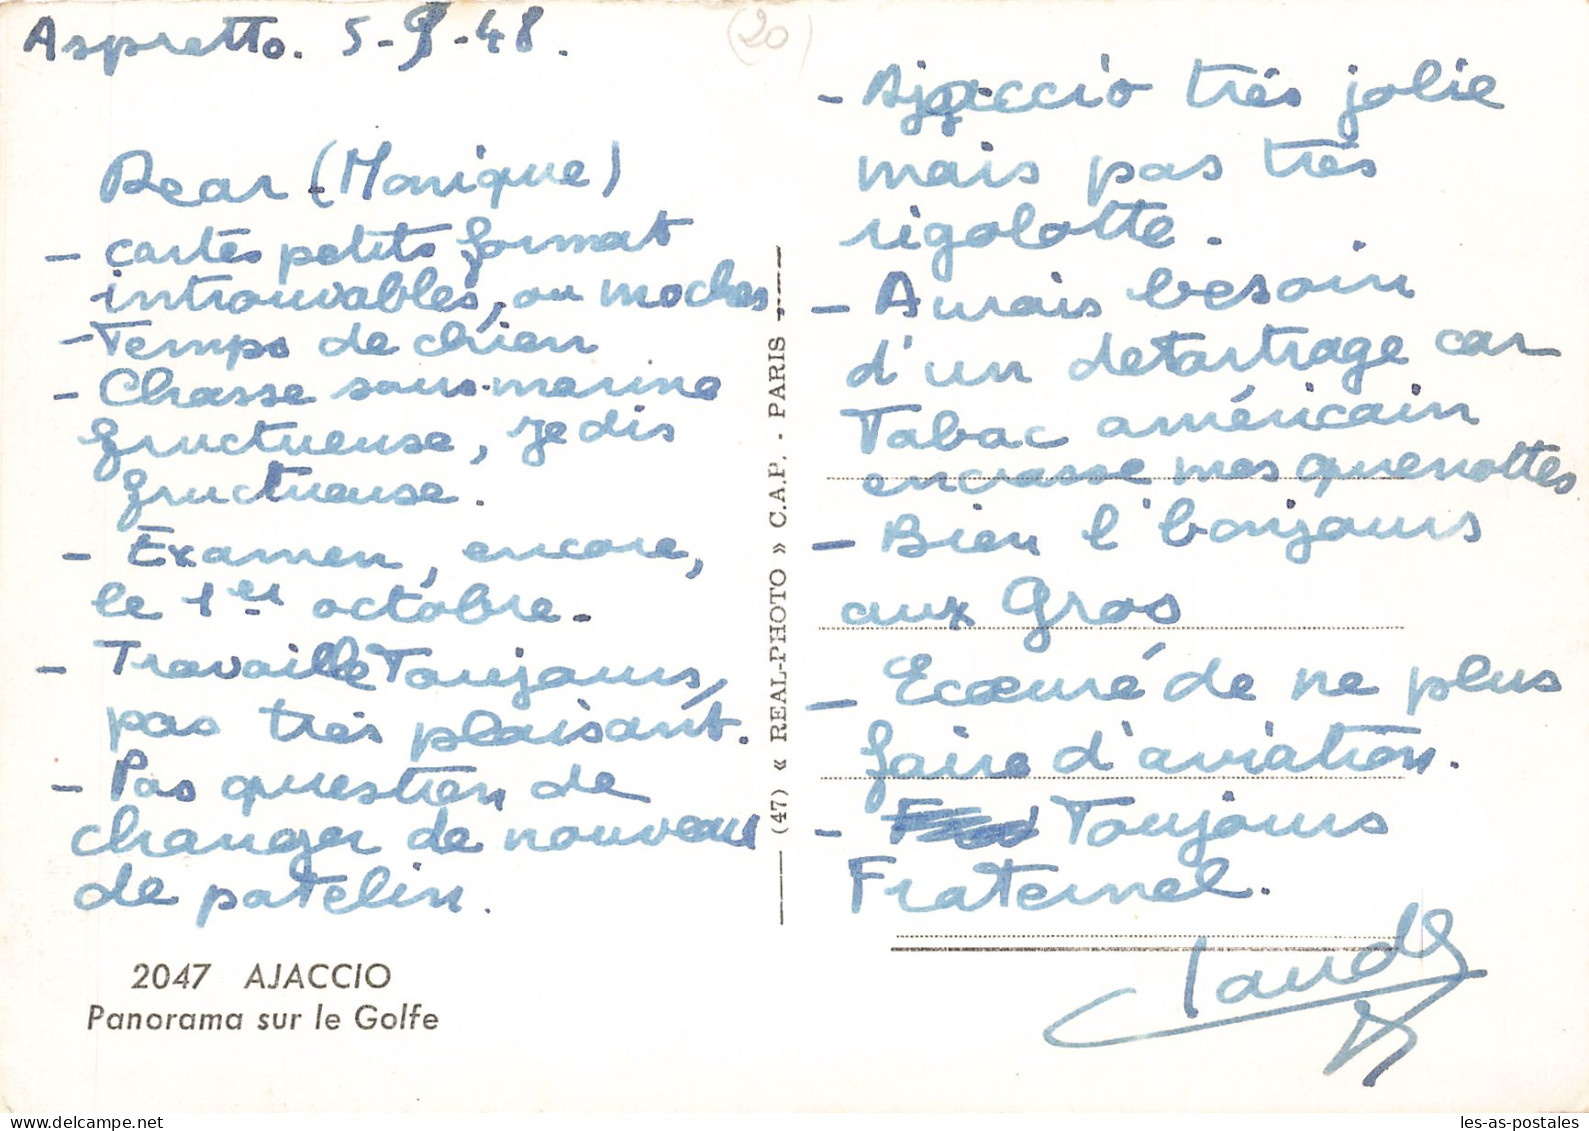 Aspretto. 5-9-48.
(20)
Dear (Monique)
- cartes petits format
introuvables, ou moches
- Temps de chien
- Chasse sous-marine
fructueuse, je dis
fructueuse.
- Examen, encore,
le 1er octobre.
- Travaille Toujours,
pas très plaisant.
- Pas question de
changer de nouveau
de patelin.
2047 AJACCIO
Panorama sur le Golfe
(47) « REAL-PHOTO » C.A.P. - PARIS
- Ajaccio très jolie
mais pas très
rigolotte.
- Aurais besoin
d'un detartrage car
Tabac américain
encrasse mes quenottes
- Bien l'bonjours
aux Gros
- Ecœuré de ne plus
faire d'aviation.
- Toujours
Fraternel.
Claude
les-as-postales